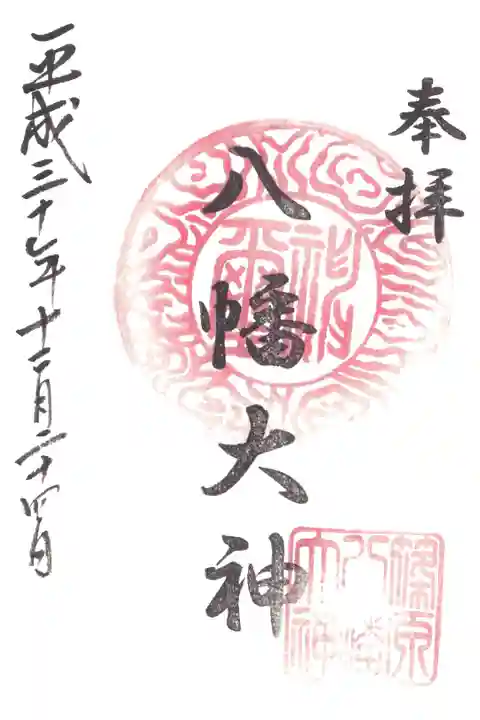 奉拝
八幡大神
篠原
八幡
大神
平成三十年十二月二十四日